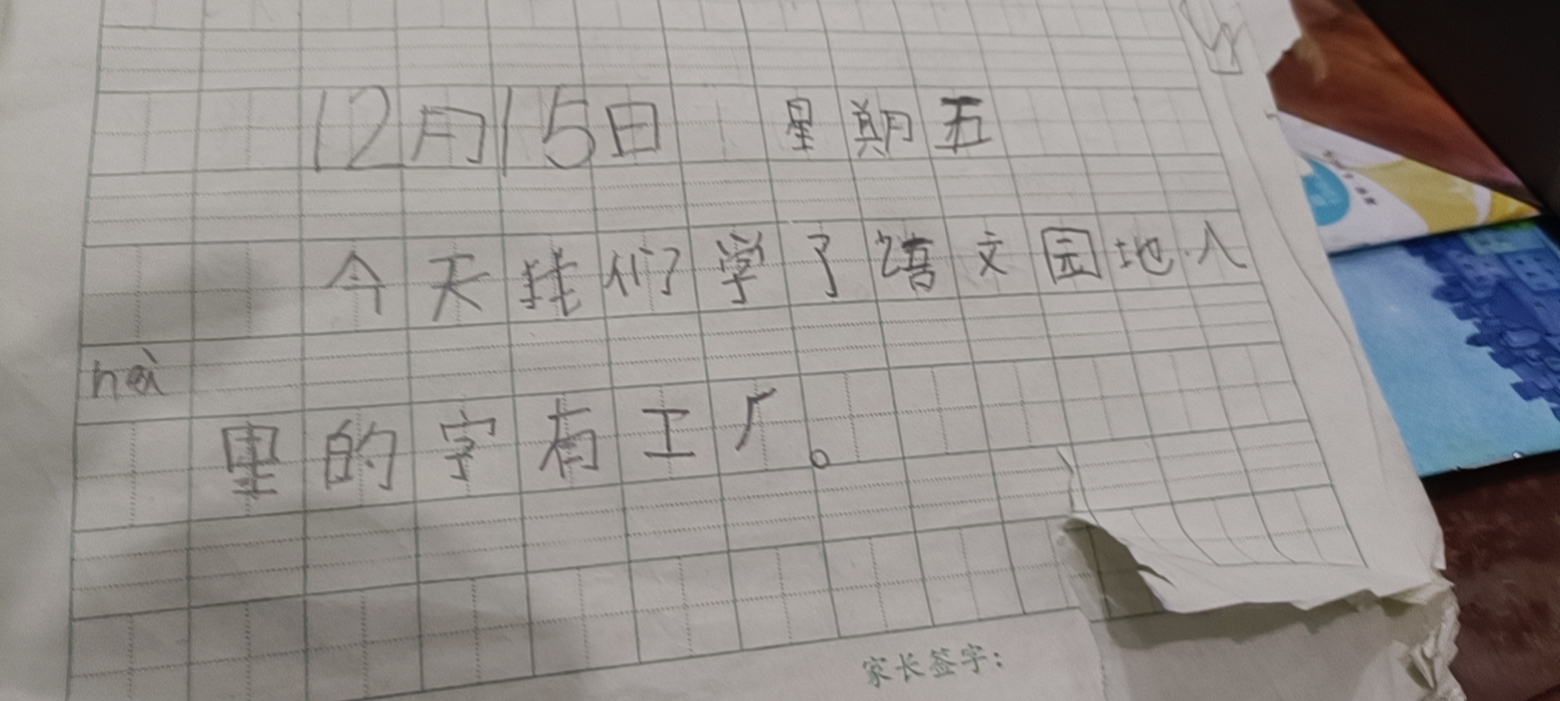 12月15日 星期五
今天我们学了语文园地八
nà
里的字有工厂。
家长签字：